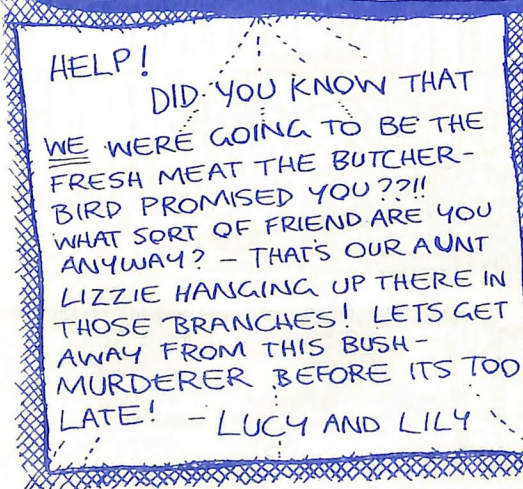 HELP!
DID YOU KNOW THAT
WE WERE GOING TO BE THE
FRESH MEAT THE BUTCHER-
BIRD PROMISED YOU??!!
WHAT SORT OF FRIEND ARE YOU
ANYWAY? - THAT'S OUR AUNT
LIZZIE HANGING UP THERE IN
THOSE BRANCHES! LETS GET
AWAY FROM THIS BUSH-
MURDERER BEFORE ITS TOO
LATE! - LUCY AND LILY